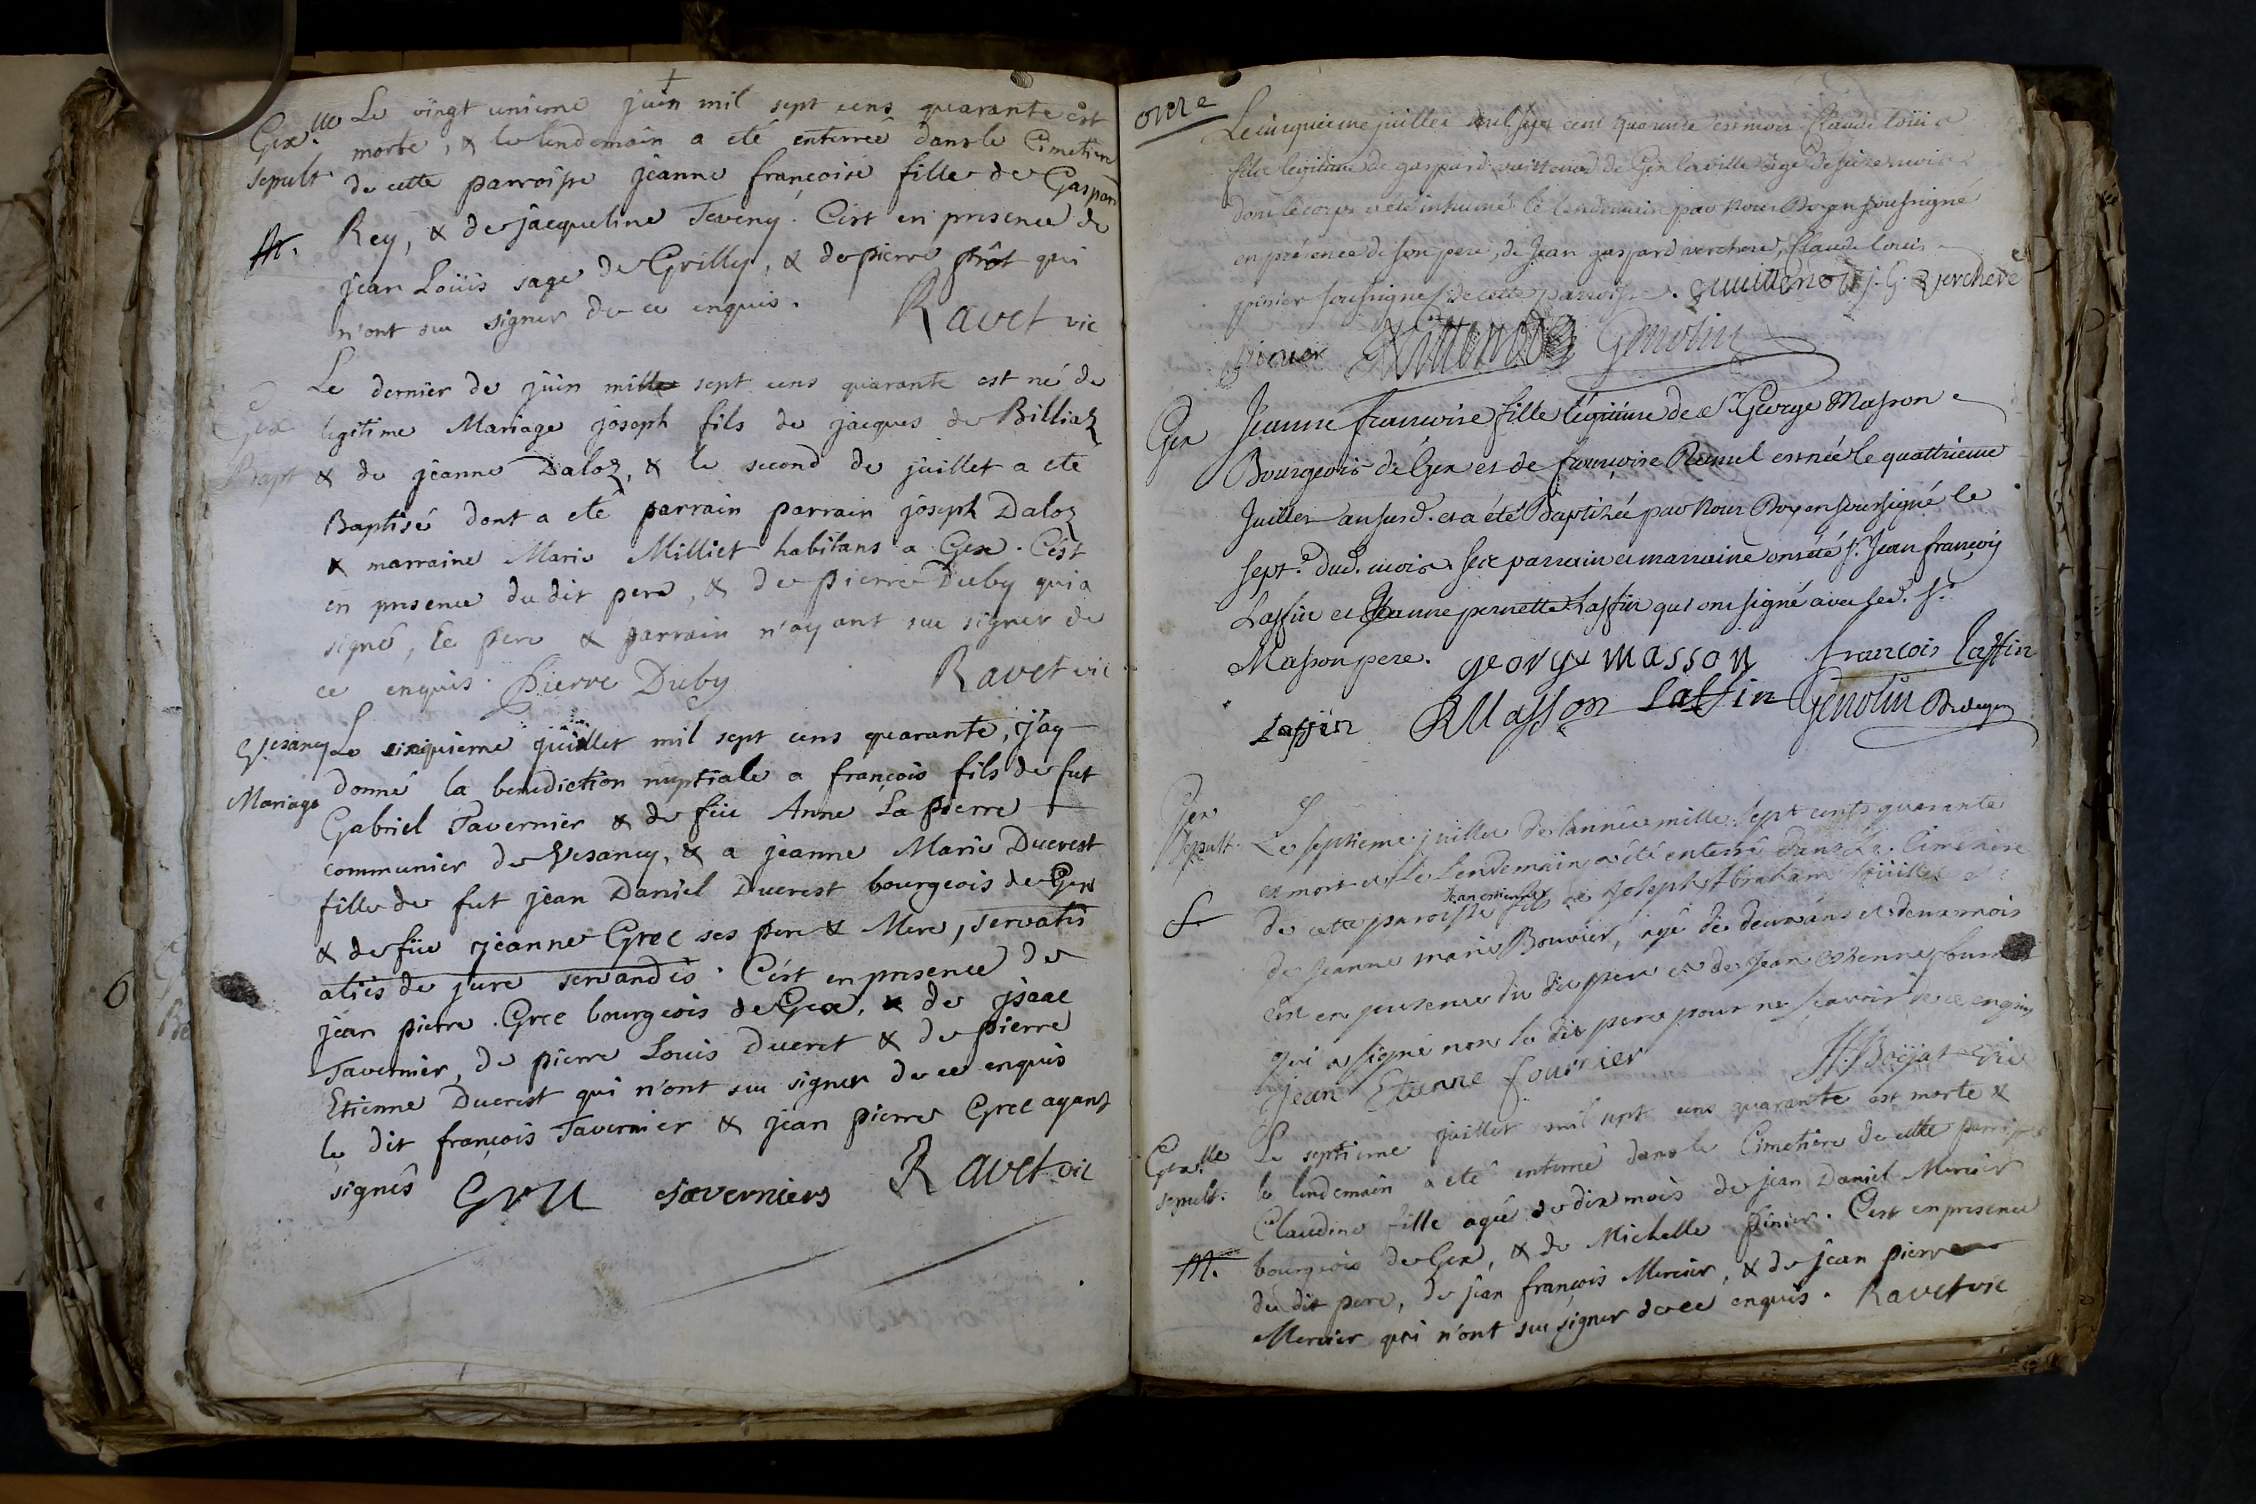 Gex.lle Le vingt unieme juin mil sept cens quarante est
sepult morte, & le lendemain a eté enterrée dans le Cimetiere
de cette parroisse jeanne françoise fille de Gaspar
Rey, & de jacqueline Teveny. C'est en presence de
jean Loüis sage de Grilly, & de pierre prôt qui
n'ont su signer de ce enquis.
Ravet vic
Le dernier de juin mille sept cens quarante est né de
Gex legitime Mariage joseph fils de jacques de Billiaz
Bapt & de jeanne Daloz, & le second de juillet a eté
Baptisé dont a eté parrain parrain joseph Daloz
& marraine Marie Milliet habitans a Gex. C'est
en presence du dit pere, & de pierre Duby qui a
signé, le pere & parrain n'ayant su signer de
ce enquis. Pierre Duby Ravet vic
Vesancy Le cinquieme juillet mil sept cens quarante, j'ay
Mariage donné la benediction nuptiale a françois fils de fut
Gabriel Tavernier & de füe Anne La pierre
communier de Vesancy, & a jeanne Marie Ducrest
fille de fut jean Daniel Ducrest bourgeois de Gex
& de füe jeanne Grec ses pere & Mere, servatis
aliis de jure servandis. C'est en presence de
jean pierre Grec bourgeois de Gex, & de jsaac
Tavernier, de pierre Louis Ducret & de pierre
Etienne Ducrest qui n'ont su signer de ce enquis
le dit françois Tavernier & jean pierre Grec ayant
signés
Ravet vic
onze
Le cinquieme juillet mil sept cent quarante est mort Claude loüis
fils legitime de gaspard vuittenod de Gex la ville agé de seize mois
dont le corps a eté inhumé le lendemain par Nous Doyen soussigné
en présence de son pere, de Jean gaspard verchere, Claude louis
pinier soussignés de cette parroisse. J. G. verchere
pinier Genolin
Gex Jeanne francoise fille légitime de Sr. George Masson
Bourgeois de Gex et de françoise Remel est née le quattrieme
Juillet an susd. et a été baptizée par Nous Doyen soussigné le
sept.e dud. mois. ses parrain et marraine ont été Sr. Jean françois
Laffin et Jeanne pernette Laffin qui ont signé avec led. Sr.
Masson pere. george masson francois laffin
Laffin Masson Laffin Genolin Doyen
Gex
Sepult. Le septieme juillet de lannée mille sept cents quarante
est mort et le lendemain a été enterré dans le Cimetiere
Jean estienne
de cette paroisse fils de Joseph Abraham
de Jeanne marie Bouvier, agé de deux ans et deux mois
c'est en presence du dit pere et de Jean estienne
qui a signé non le dit pere pour ne sçavoir de ce enquis
Jean Etienne fournier
Le septieme juillet mil sept cens quarante est morte &
Gex.lle le lendemain a eté enterrée dans le Cimetiere de cette parroisse
sepult. Claudine fille agée de dix mois de jean Daniel Mercier
M. bourgeois de Gex, & de Michelle pinier. C'est en presence
du dit pere, de jean françois Mercier, & de jean pierre
Mercier qui n'ont su signer de ce enquis. Ravet vic